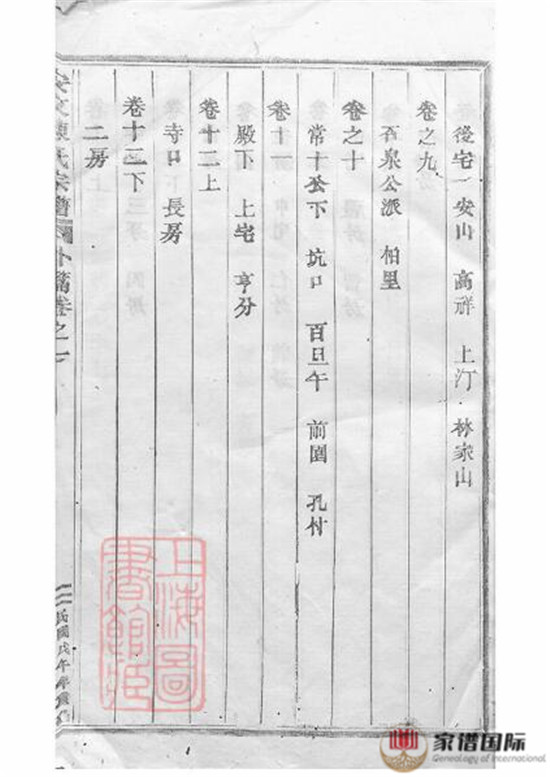 後宅 安山 高祥 上汀 林家山
卷之九
泉公派 柏里
卷之十
常十公下 坑口 百旦午 前園 孔村
卷十一
殿下 上宅 亨分
卷十二上
寺口 長房
卷十二下
二房
安文陳氏宗譜 卷之
民國戊午年重
上海圖書館藏
家谱国际
Genealogy of International